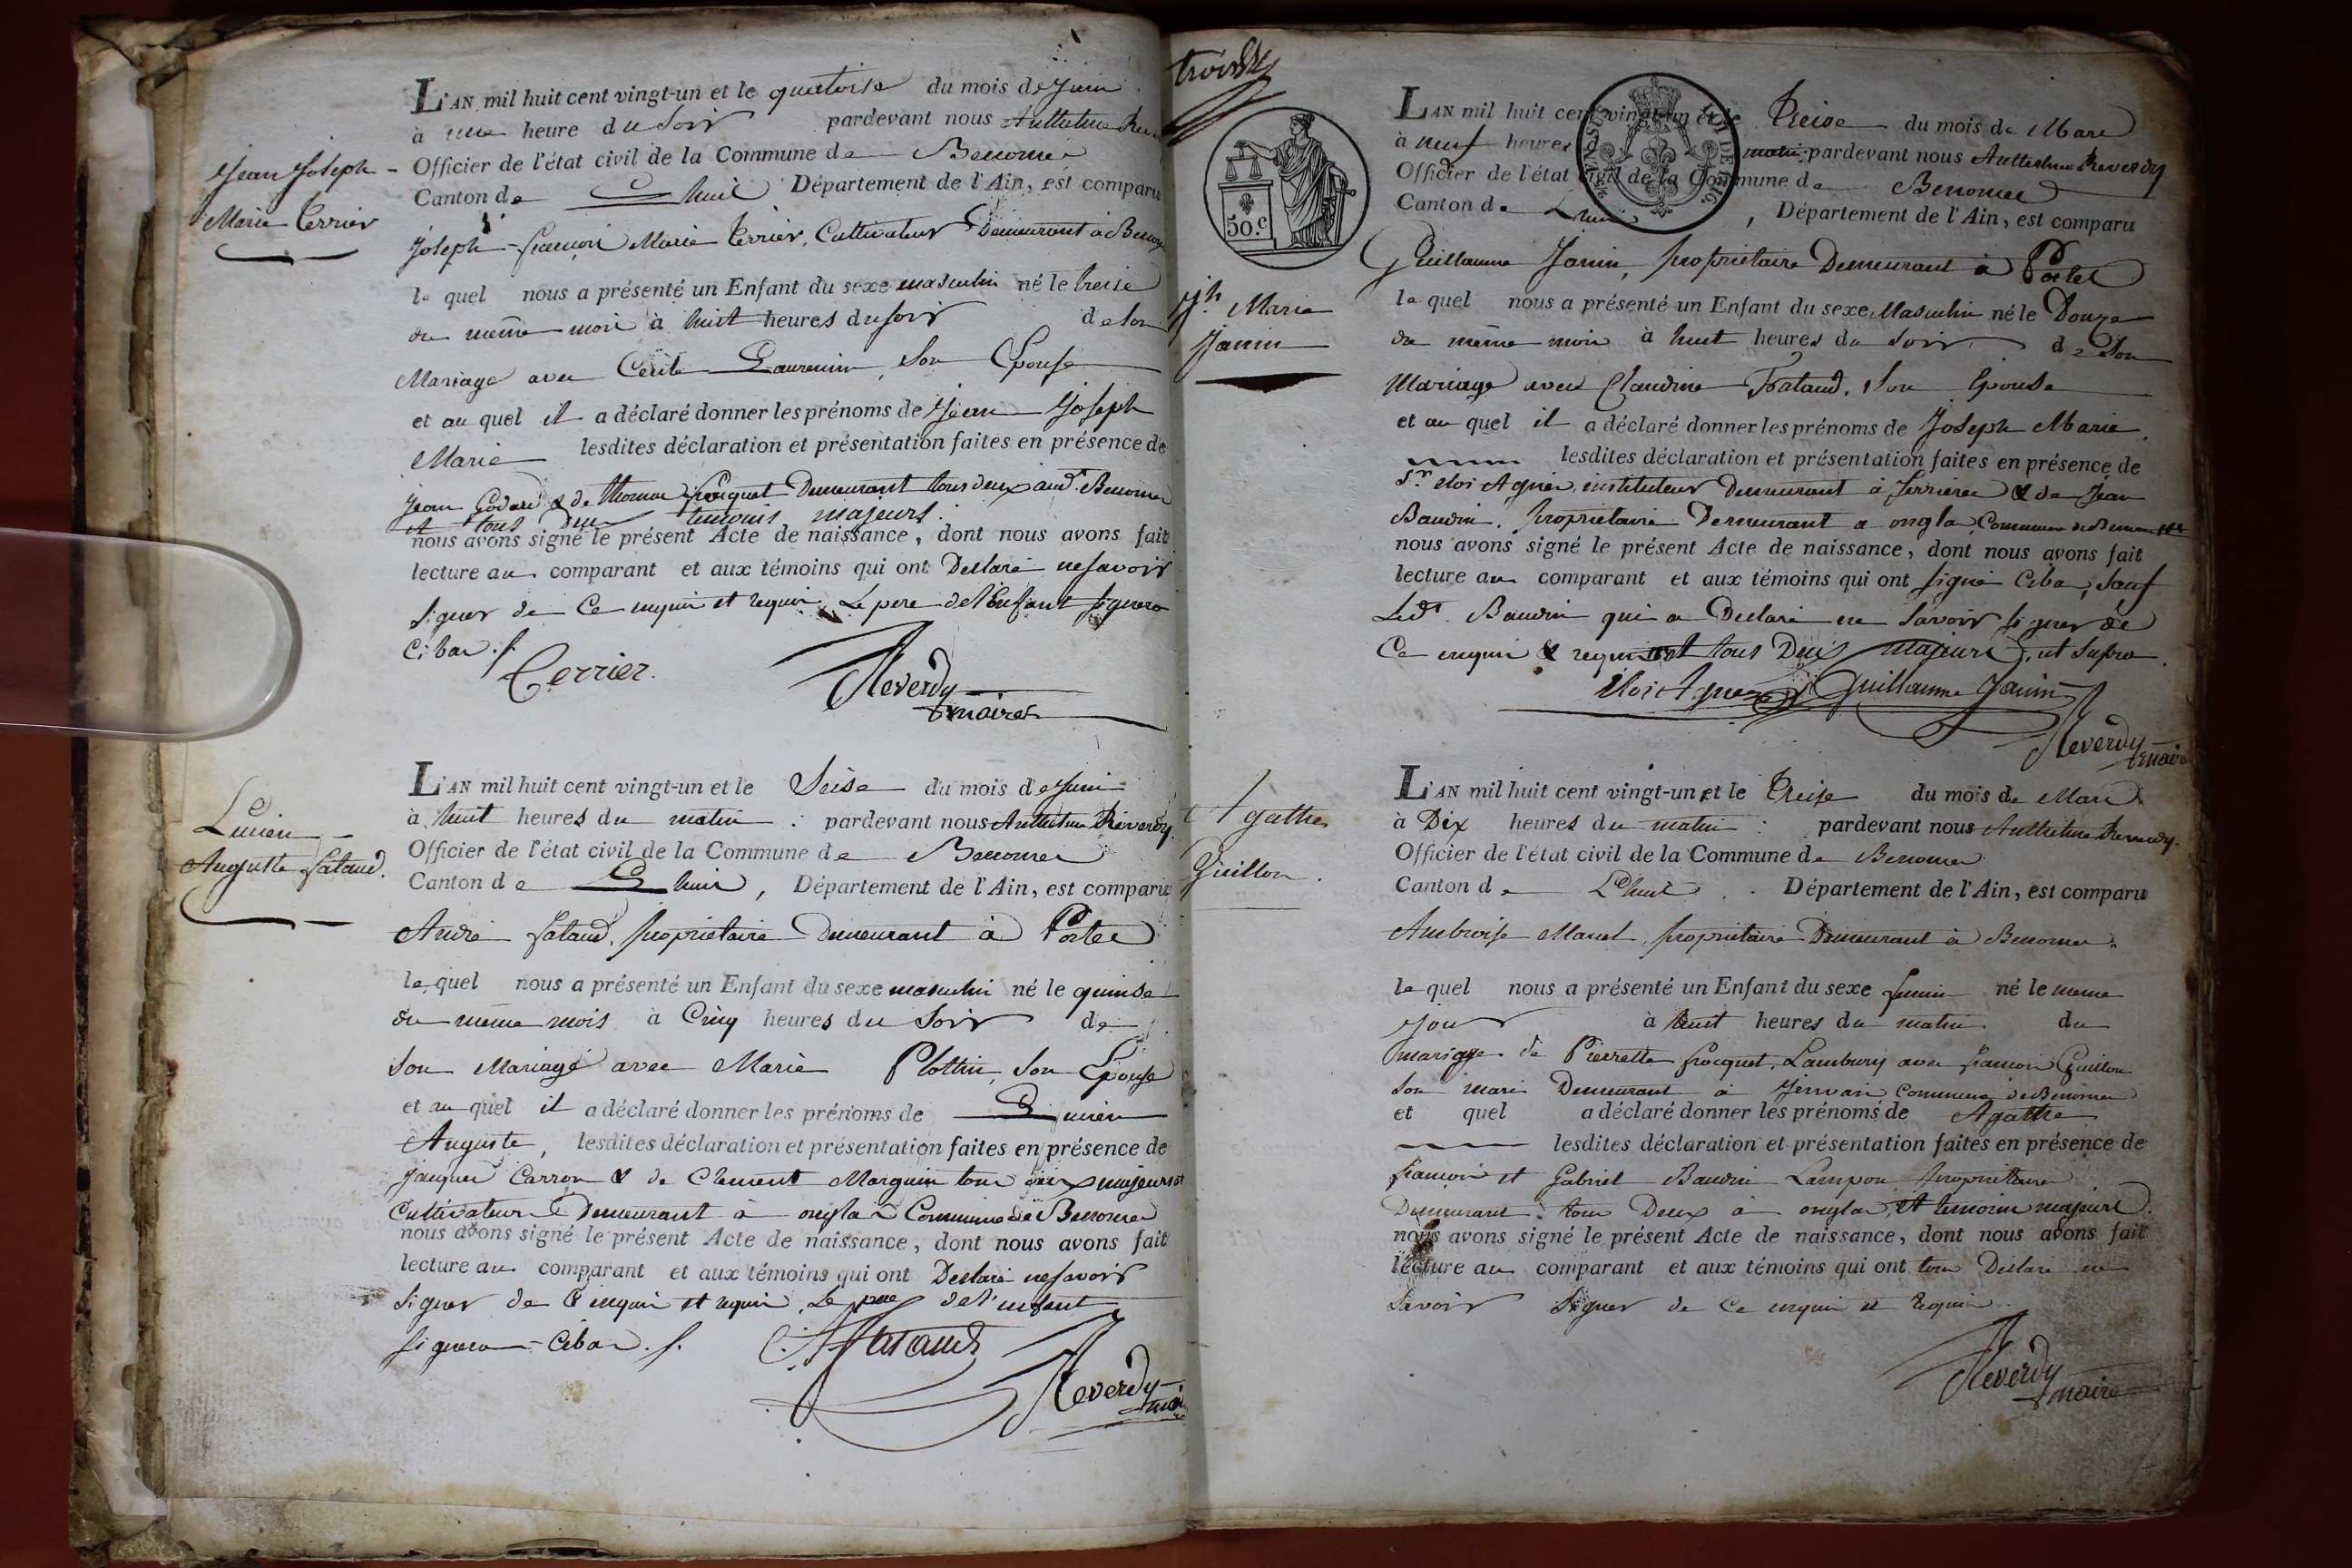 Jean Joseph
Marie Terrier
L'AN mil huit cent vingt-un et le quatorse du mois de Juin
à une heure du Soir pardevant nous Anthelme
Officier de l'état civil de la Commune de Benonce
Canton de Lhuis Département de l'Ain, est comparu
Joseph-françois Marie Terrier, Cultivateur Demeurant à
le quel nous a présenté un Enfant du sexe masculin né le treise
du même mois à huit heures du soir de son
Mariage avec Cecile Laurencin, son Epouse
et au quel il a déclaré donner les prénoms de Jean Joseph
Marie lesdites déclaration et présentation faites en présence de
Jean Godard & de Thomas frocquet Demeurant tous deux aud.t Benonce
et tous deux temoins majeurs.
nous avons signé le présent Acte de naissance, dont nous avons fait
lecture au comparant et aux témoins qui ont Declaré ne savoir
signer de Ce enquis et requis. Le pere de l'Enfant signera
Ci bas ./.
Terrier.
Reverdy
maire
Lucien
Auguste fataud.
L'AN mil huit cent vingt-un et le Seise du mois de Juin
à huit heures du matin : pardevant nous Anthelme Reverdy.
Officier de l'état civil de la Commune de Benonce
Canton de Lhuis, Département de l'Ain, est comparu
André fataud, proprietaire Demeurant à Portes
le quel nous a présenté un Enfant du sexe masculin né le quinse
du même mois à Cinq heures du Soir de
Son Mariage avec Marie Plottin, son Epouse
et au quel il a déclaré donner les prénoms de Lucien
Auguste, lesdites déclaration et présentation faites en présence de
Jacques Carron & de Clement Marguin tous deux majeurs et
Cultivateurs Demeurant à onglas Commune de Benonce
nous avons signé le présent Acte de naissance, dont nous avons fait
lecture au comparant et aux témoins qui ont Declaré ne savoir
Signer de Ce enquis et requis. Le pere de l'enfant
signera Cibas ./.
fataud
Reverdy
trois
50.c
J.h Marie
Janin
L'AN mil huit cent vingt-un et le Treise du mois de Mars
à neuf heures matin: pardevant nous Anthelme Reverdy
Officier de l'état civil de la Commune de Benonce
Canton de Lhuis, Département de l'Ain, est comparu
Guillaume Janin, proprietaire Demeurant à Portes
le quel nous a présenté un Enfant du sexe Masculin né le Douze
du même mois à huit heures du Soir de Son
Mariage avec Claudine Fataud, Son Epouse
et au quel il a déclaré donner les prénoms de Joseph Marie.
lesdites déclaration et présentation faites en présence de
S.r eloi Agnès instituteur Demeurant à ferrieres & de Jean
Baudin, proprietaire Demeurant a onglas, Commune de Benonce
nous avons signé le présent Acte de naissance, dont nous avons fait
lecture au comparant et aux témoins qui ont signé Cibas, sauf
Led.t Baudin qui a Declaré ne Savoir signer de
Ce enquis & requis et tous Deux majeurs, ut supra.
Eloi Agnes Guillaume Janin
Reverdy
maire
Agathe
Guillon.
L'AN mil huit cent vingt-un et le Treise du mois de Mars
à Dix heures du matin : pardevant nous Anthelme Reverdy.
Officier de l'état civil de la Commune de Benonce
Canton de Lhuis. Département de l'Ain, est comparu
Ambroise proprietaire Demeurant à Benonce,
le quel nous a présenté un Enfant du sexe feminin né le meme
jour à huit heures du matin du
mariage de Pierrette frocquet, avec francois Guillon
son mari Demeurant à Commune de Benonce
et quel a déclaré donner les prénoms de Agathe
lesdites déclaration et présentation faites en présence de
francois et Gabriel Baudin proprietaires
Demeurant tous Deux à onglas, et temoins majeurs.
nous avons signé le présent Acte de naissance, dont nous avons fait
lecture au comparant et aux témoins qui ont tous Declaré ne
Savoir Signer de Ce enquis et Requis.
Reverdy
maire